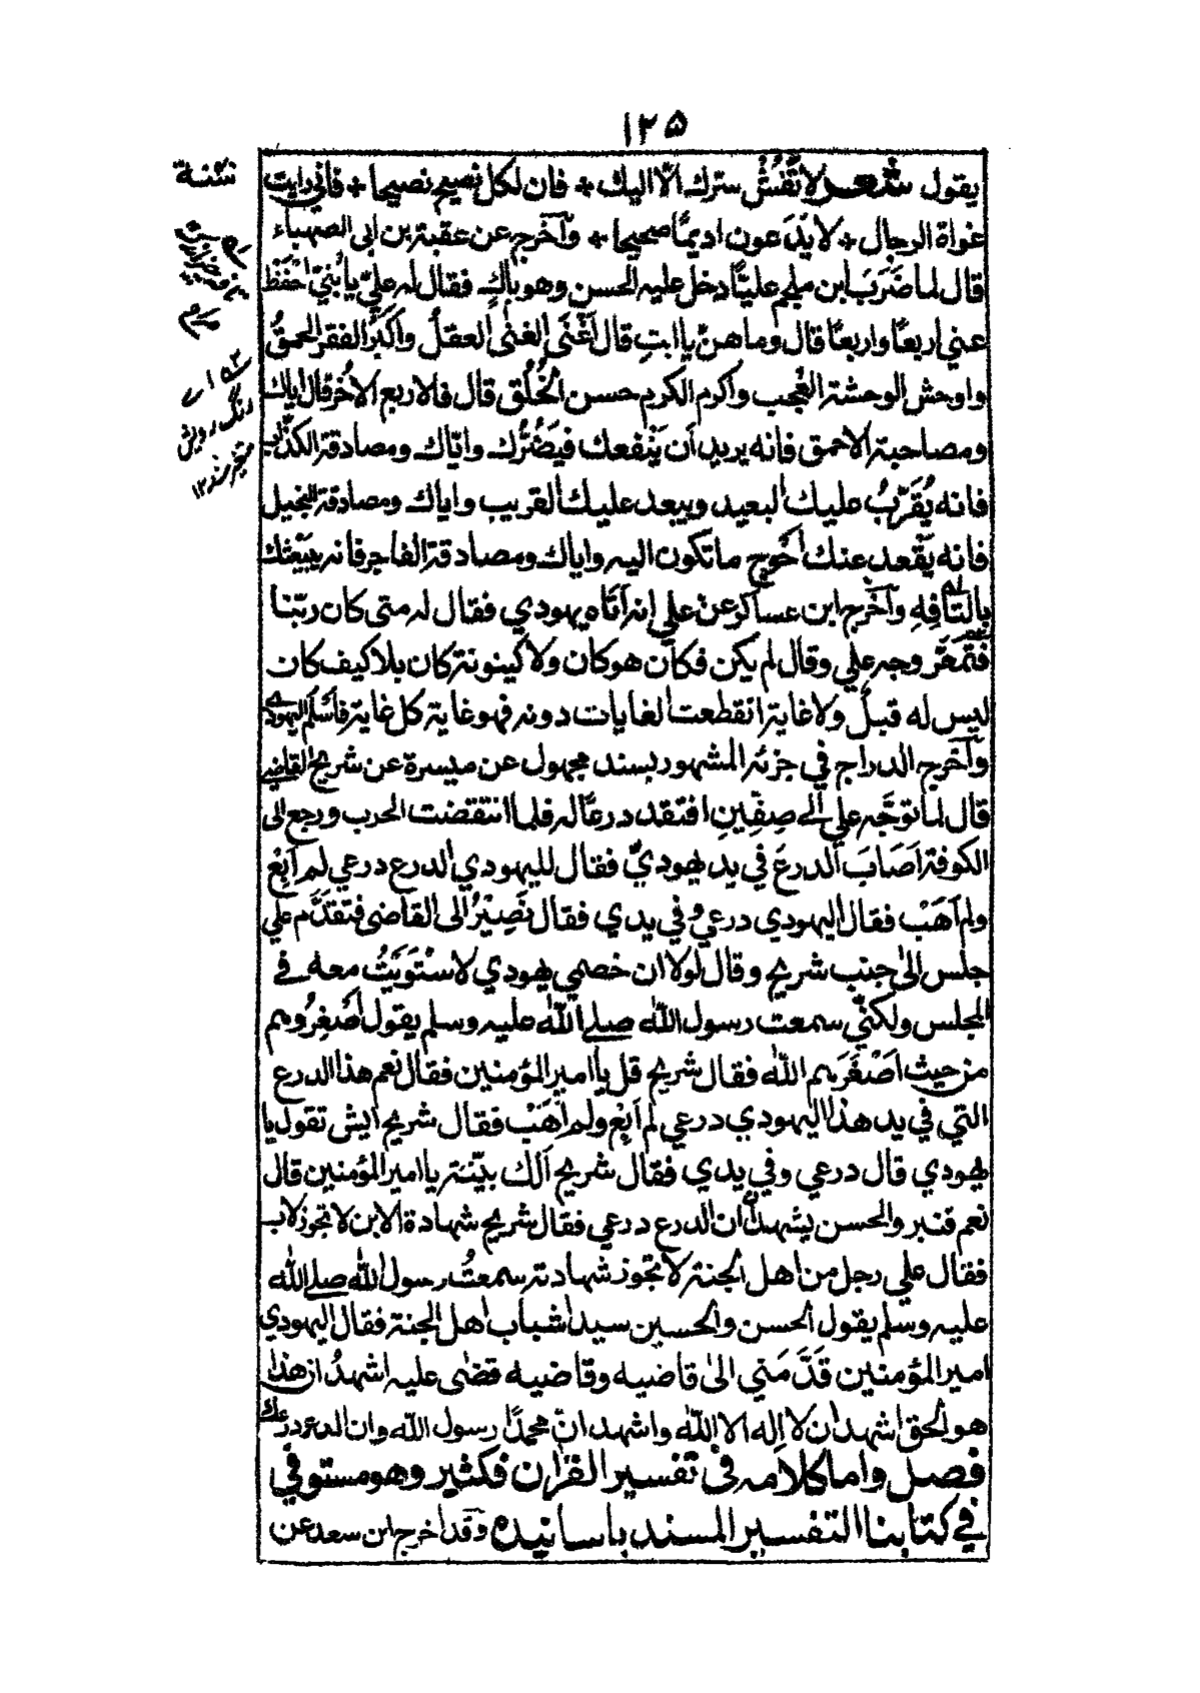 ١٢٥
يقول شعر لا تُفْشِ سترك الّا اليك + فان لكل نصيح نصيحا + فاني رايت
غواة الرجال + لا يدَعون اديمًا صحيحا + وآخرج عن عقبة بن ابى الصهباء
قال لما ضَرَبَ ابن ملجم عليًّا دخل عليه الحسن وهو باكٍ فقال له عليّ يا بُنيّ احْفَظْ
عني اربعًا واربعًا قال وما هنّ يا ابتِ قال اَغْنَى الغنٰى العقلُ واكبرُ الفقر الحمقُ
واوحش الوحشة العُجب واكرم الكرم حسن الخُلُق قال فالاربع الاُخر قال اياك
ومصاحبة الاحمق فانه يريد اَن يَنْفعك فيَضُرُّك وايّاك ومصادقة الكذّاب
فانه يُقَرِّبُ عليك البعيد ويبعد عليك القريب واياك ومصادقة البخيل
فانه يَقْعد عنك اَحْوج ما تكون اليه واياك ومصادقة الفاجر فانه يبيعك
بالتَّافِهِ وآخرج ابن عساكر عن علي انه اَتَاه يهودي فقال له متى كان ربّنا
فتَمَعَّر وجه علي وقال لم يكن فكان هو كان ولا كينونة كان بلا كيف كان
ليس له قبلٌ ولا غاية انقطعت الغايات دونه فهو غاية كل غاية فاَسْلَم اليهودي
وآخرج الدراج في جزئه المشهور بسند مجهول عن ميسرة عن شريح القاضي
قال لما توجّه علي اِلٰے صِفّين افتقد درعًا له فلما انقضت الحرب ورجع الى
الكوفة اَصَابَ الدرعَ في يد يهوديّ فقال لليهودي الدرع درعي لم اَبِعْ
ولم اَهَبْ فقال اليهودي درعي وفي يدي فقال نَصِيْرُ الى القاضى فتقدَّم علي
جلس الىٰ جنب شريح وقال لولا ان خصمي يهودي لاسْتَوَيْتُ معه في
المجلس ولكنّي سمعت رسول اللّٰه صلے اللّٰه عليه وسلم يقول اَصْغِرُوهم
من حيث اَصْغَرَهم اللّٰه فقال شريح قل يا امير المؤمنين فقال نعم هذا الدرع
التي في يد هذا اليهودي درعي لم اَبِعْ ولم اَهَبْ فقال شريح ايش تقول يا
يهودي قال درعي وفي يدي فقال شريح اَلَك بيّنة يا امير المؤمنين قال
نعم قنبر والحسن يشهدان ان الدرع درعي فقال شريح شهادة الابن لا تجوز للاب
فقال علي رجل من اهل الجنة لا تجوز شهادته سمعتُ رسول اللّٰه صلے اللّٰه
عليه وسلم يقول الحسن والحسين سيدا شباب اهل الجنة فقال اليهودي
امير المؤمنين قَدَّمَني الىٰ قاضيه وقاضيه قضٰى عليه اشهدُ ان هذا
هو الحق اشهد ان لا اِله الا اللّٰه واشهد انّ محمدًا رسول اللّٰه وان الدرع درعك
فصل واما كلامه فى تفسير القرٰان فكثير وهو مستوفي
في كتابنا التفسير المسند باسانيده وقد اخرج ابن سعد عن